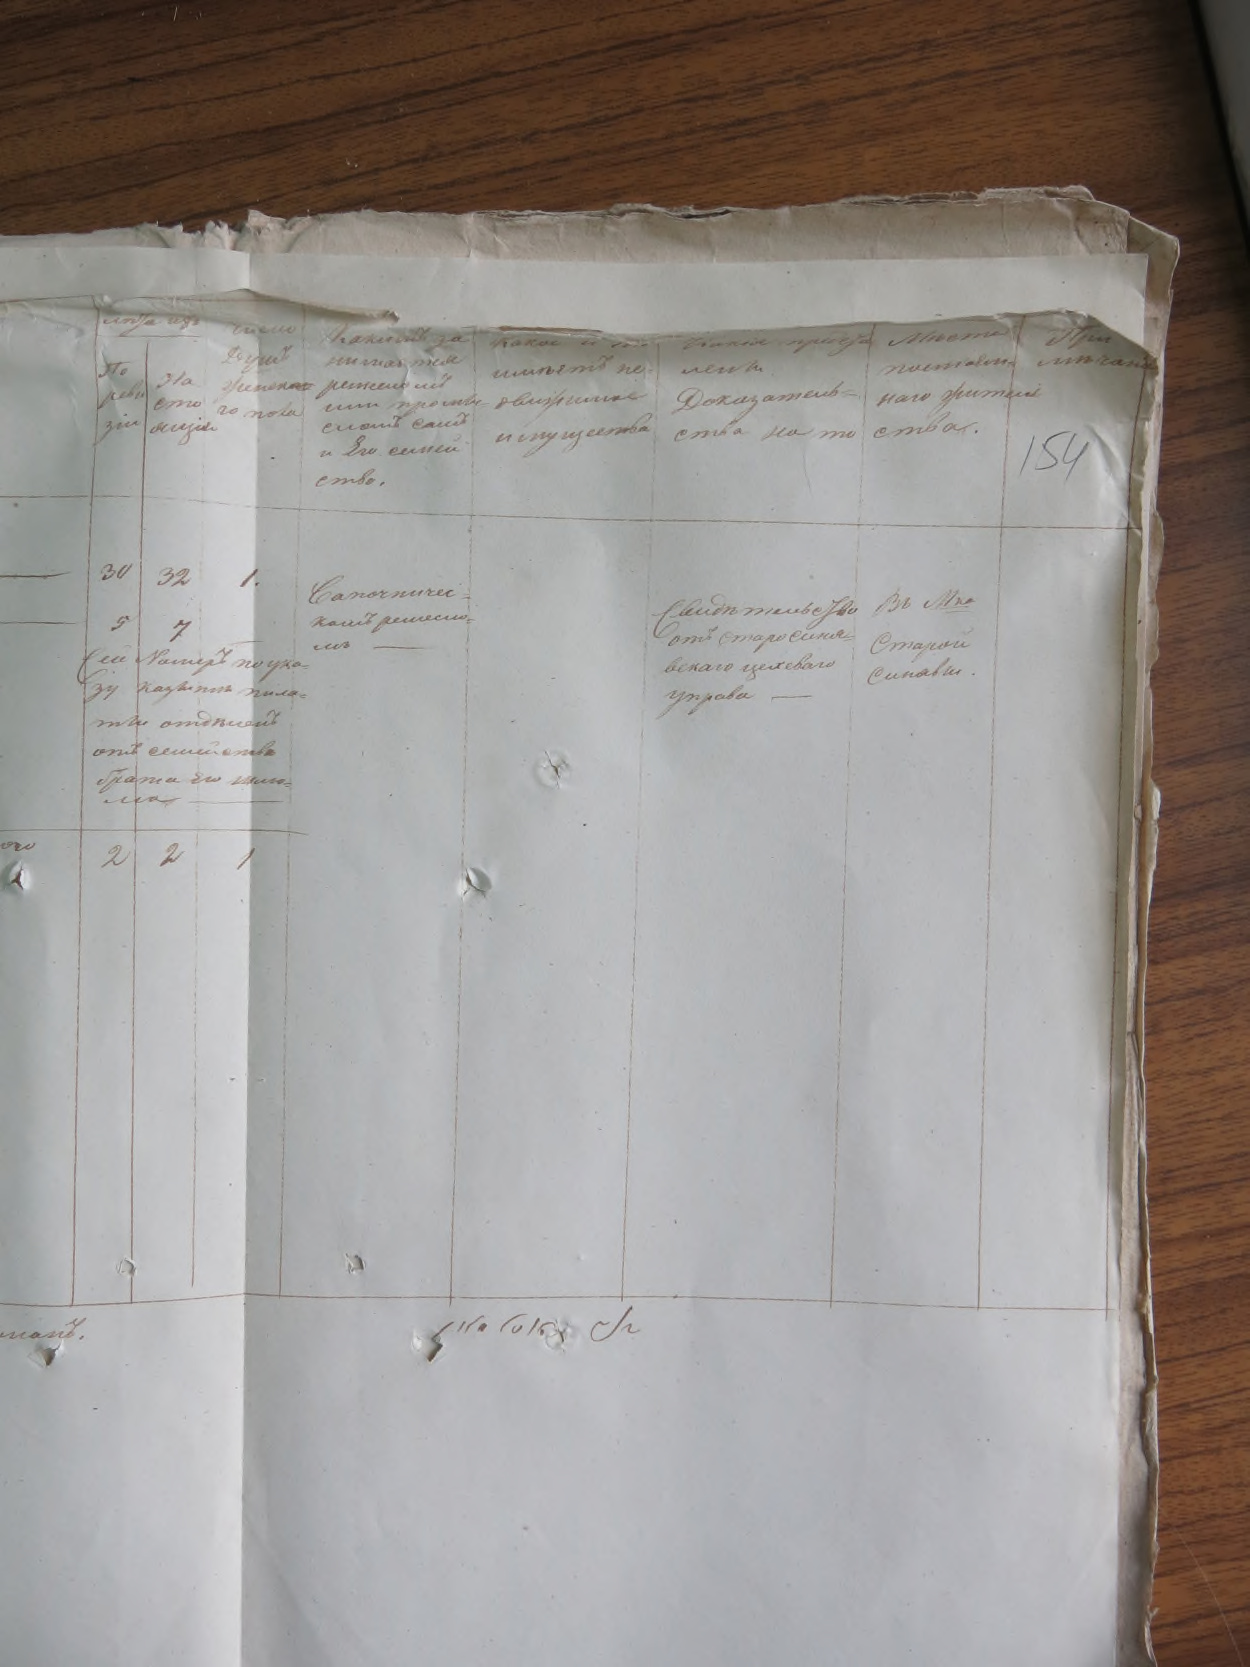 лѣта изъ
По
реви
зіи
На
сто
ящія
число
Душъ
женска
го пола
Какимъ за
нимается
ремесломъ
или промы-
сломъ самъ
и Его семей
ство.
какое и
имѣетъ не-
движимое
имущество
Какія предъя
лены
Доказатель-
ства на то
Место
постоян-
наго житель
ства.
При
мѣчаніе
154
30 32 1.
5 7
Сей Номеръ по ука-
зу казенной пала-
ты отдѣленъ
отъ семейства
брата Его
2 2 1
Сапожничес-
кимъ ремесло-
мъ
Свидѣтельство
отъ старосиня-
вскаго цеховаго
управа
Въ Мко
Старой
Синявы.